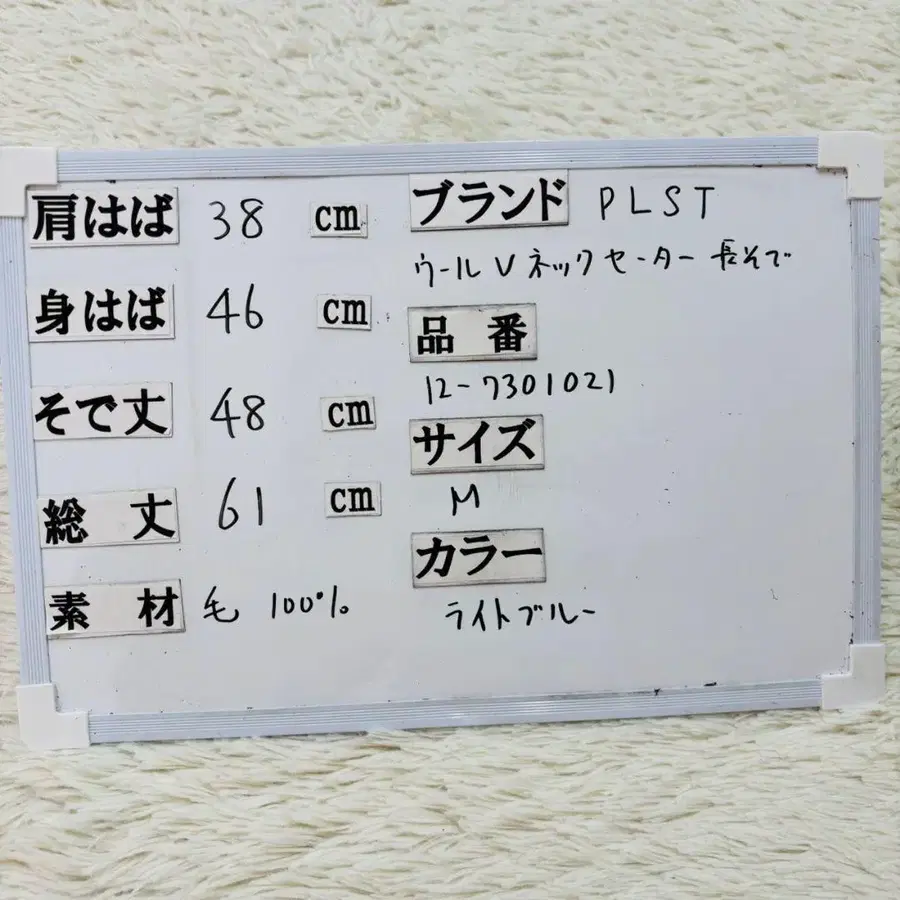 肩はば 38 cm
身はば 46 cm
そで丈 48 cm
総丈 61 cm
素材 毛 100%
ブランド PLST
ウールVネックセーター長そで
品番
12-7301021
サイズ
M
カラー
ライトブルー